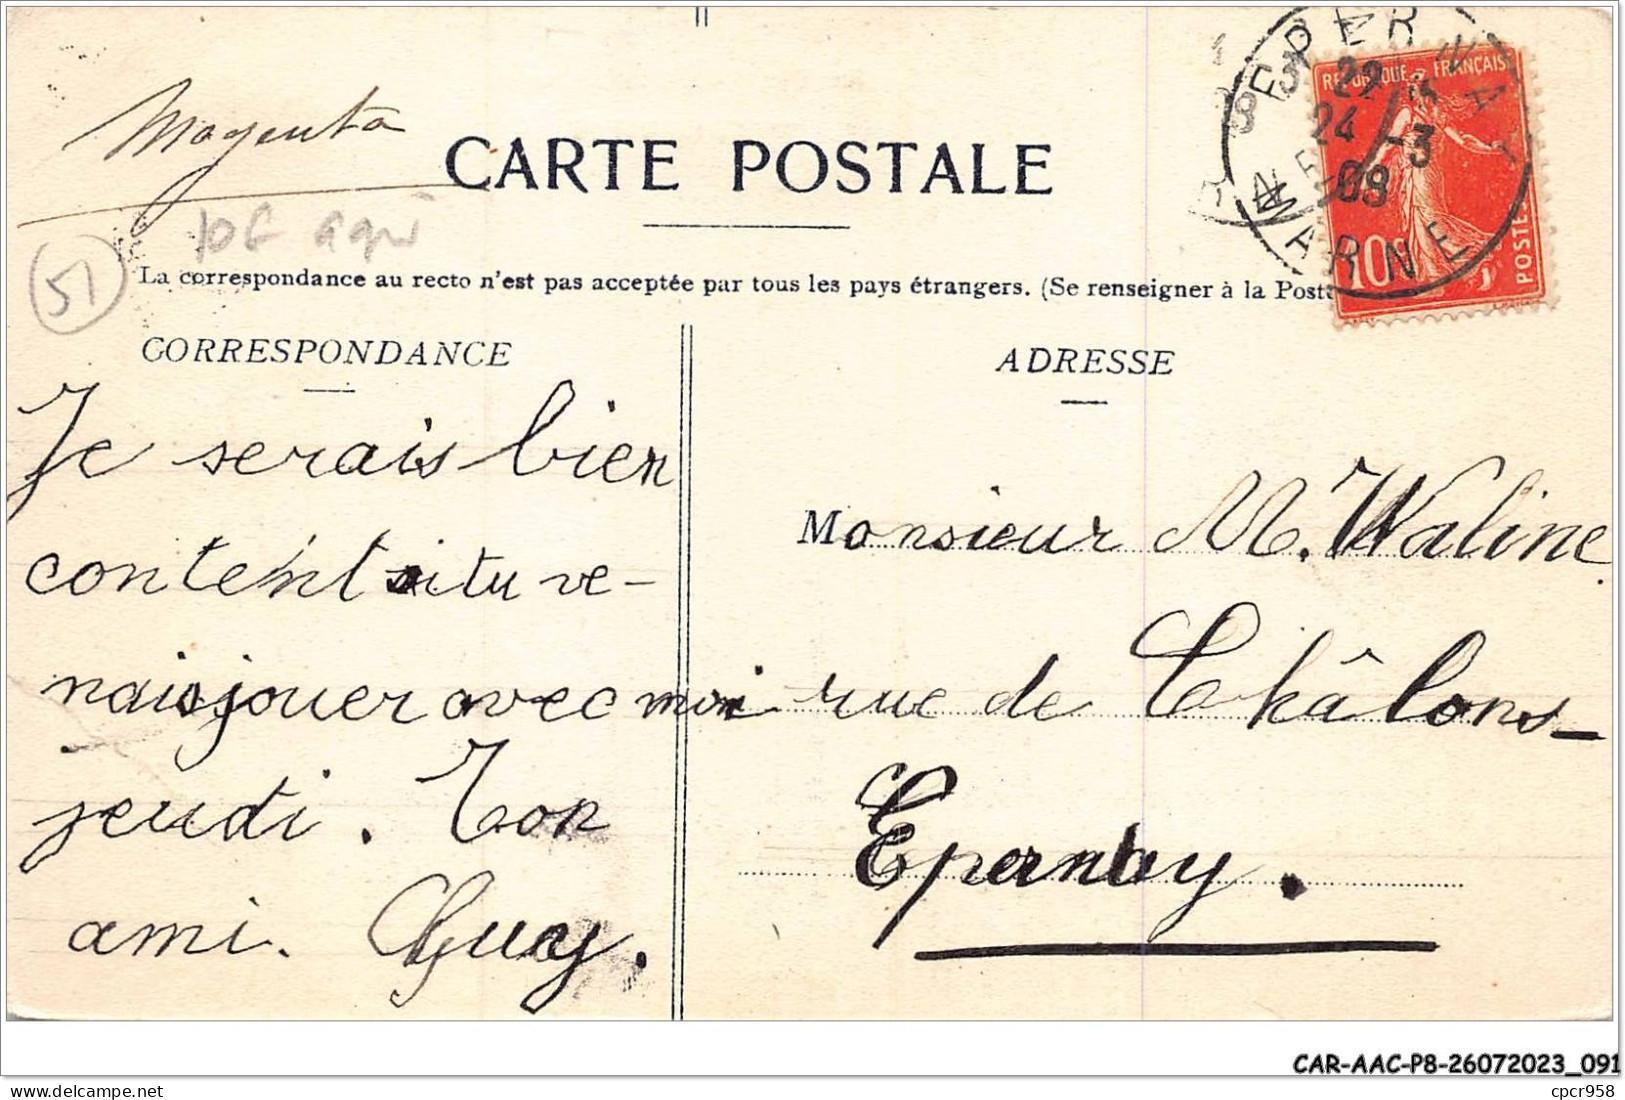 Magenta
CARTE POSTALE
51
La correspondance au recto n'est pas acceptée par tous les pays étrangers. (Se renseigner à la Poste
EPERNAY
24 -3
09
MARNE
REPUBLIQUE FRANÇAISE
10
POSTES
CORRESPONDANCE
ADRESSE
Je serais bien
content si tu ve-
nais jouer avec moi
jeudi. Ton
ami. Guy.
Monsieur M. Waline
rue de Châlons
Epernay.
CAR-AAC-P8-26072023_091
cpcr958